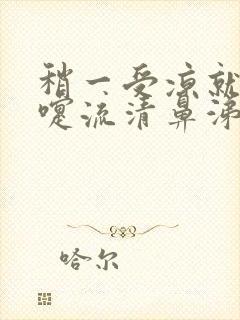 稍一受凉就
嚏流清鼻涕
哈尔